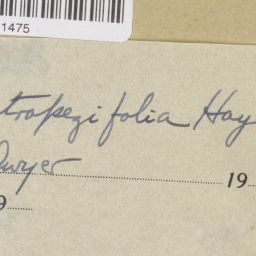 1475
trapezifolia Hay
Dwyer
19
9